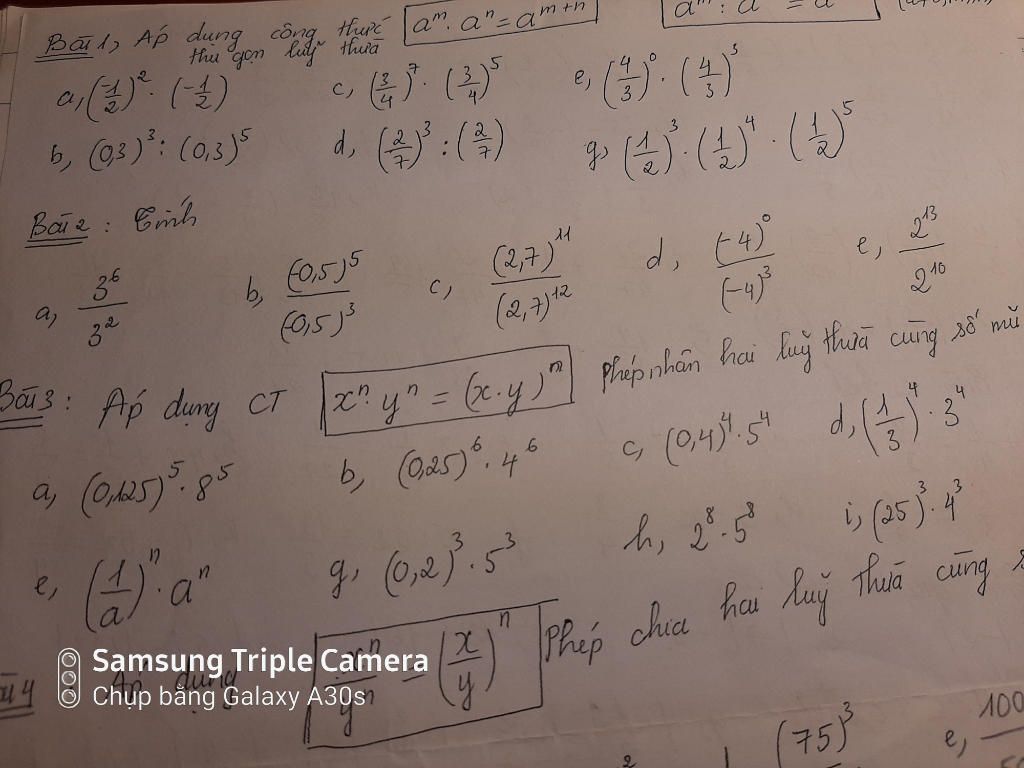 Bài 1, Áp dụng công thức a^m . a^n = a^{m+n} a^m : a = a
thu gọn luỹ thừa
a, (-1/2)^2 . (-1/2) c, (3/4)^7 . (3/4)^5 e, (4/3)^0 . (4/3)^3
b, (0,3)^3 : (0,3)^5 d, (2/7)^3 : (2/7) g, (1/2)^3 . (1/2)^4 . (1/2)^5
Bài 2 : Tính
a, 3^6/3^2 b, (-0,5)^5/(-0,5)^3 c, (2,7)^11/(2,7)^12 d, (-4)^0/(-4)^3 e, 2^13/2^10
Bài 3 : Áp dụng CT x^n . y^n = (x.y)^n Phép nhân hai luỹ thừa cùng số mũ
a, (0,125)^5 . 8^5 b, (0,25)^6 . 4^6 c, (0,4)^4 . 5^4 d, (1/3)^4 . 3^4
e, (1/a)^n . a^n g, (0,2)^3 . 5^3 h, 2^8 . 5^8 i, (25)^3 . 4^3
4 Áp dụng x^n/y^n = (x/y)^n Phép chia hai luỹ thừa cùng
(75)^3 e, 100
Samsung Triple Camera
Chụp bằng Galaxy A30s